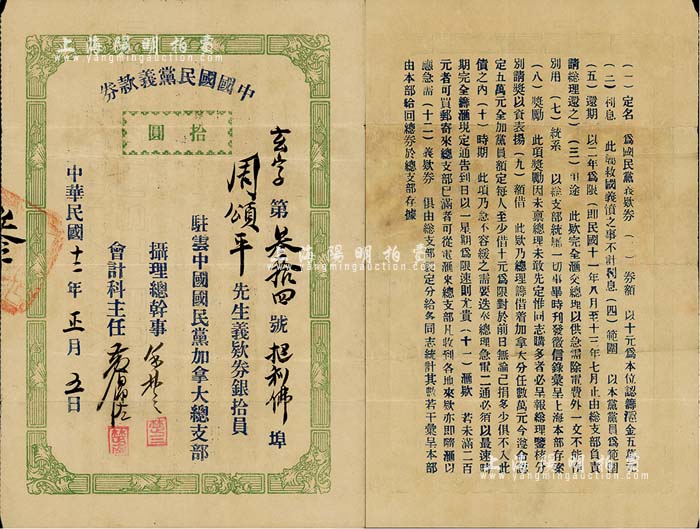 上海陽明拍賣
www.yangmingauction.com
中國國民黨義款券
拾圓
玄字第叁拾四號把利佛埠
周頌平先生義欵券銀拾員
駐雲中國國民黨加拿大總支部
攝理總幹事
會計科主任
中華民國十二年正月五日
(一)定名 為國民黨義欵券 (二)券額 以十元為本位認籌滙金五萬
(二)利息 此屬救國義債之事不計利息 (四)範圍 以本黨黨員為範圍
(五)還期 以二年為限(即民國十一年八月至十三年七月止由總支部負責
請總理還之)(三)用途 此欵完全滙交總理以供急需除電費外一文不能
別用 (七)統系 以總支部統屬一切事畢時刊發徵信錄彙呈上海本部存案
(八)獎勵 此項獎勵因未稟總理未敢先定惟同志購多者必呈報總理鑒核分
別請獎以資表揚 (九)額借 此欵乃總理籌借着加拿大分任數萬元今遵命
定五萬元全加黨員額定每人至少借十元為限對於前日無論已捐多少俱不
債之內 (十)時期 此項乃急不容緩之需要迭奉總理急電二通必須以最速時
期完全籌滙現定通告到日以一星期為限速則尤貴 (十一)滙欵 若未滿二百
元者可買郵寄來總支部已滿者可從電滙來總支部凡收到各地來欵亦即隨滙以
應急需 (十二)義欵券 俱由總支部定分給各同志統計其數若干彙呈本部
由本部給回總券於總支部存據
上海陽明拍賣
www.yangmingauction.com